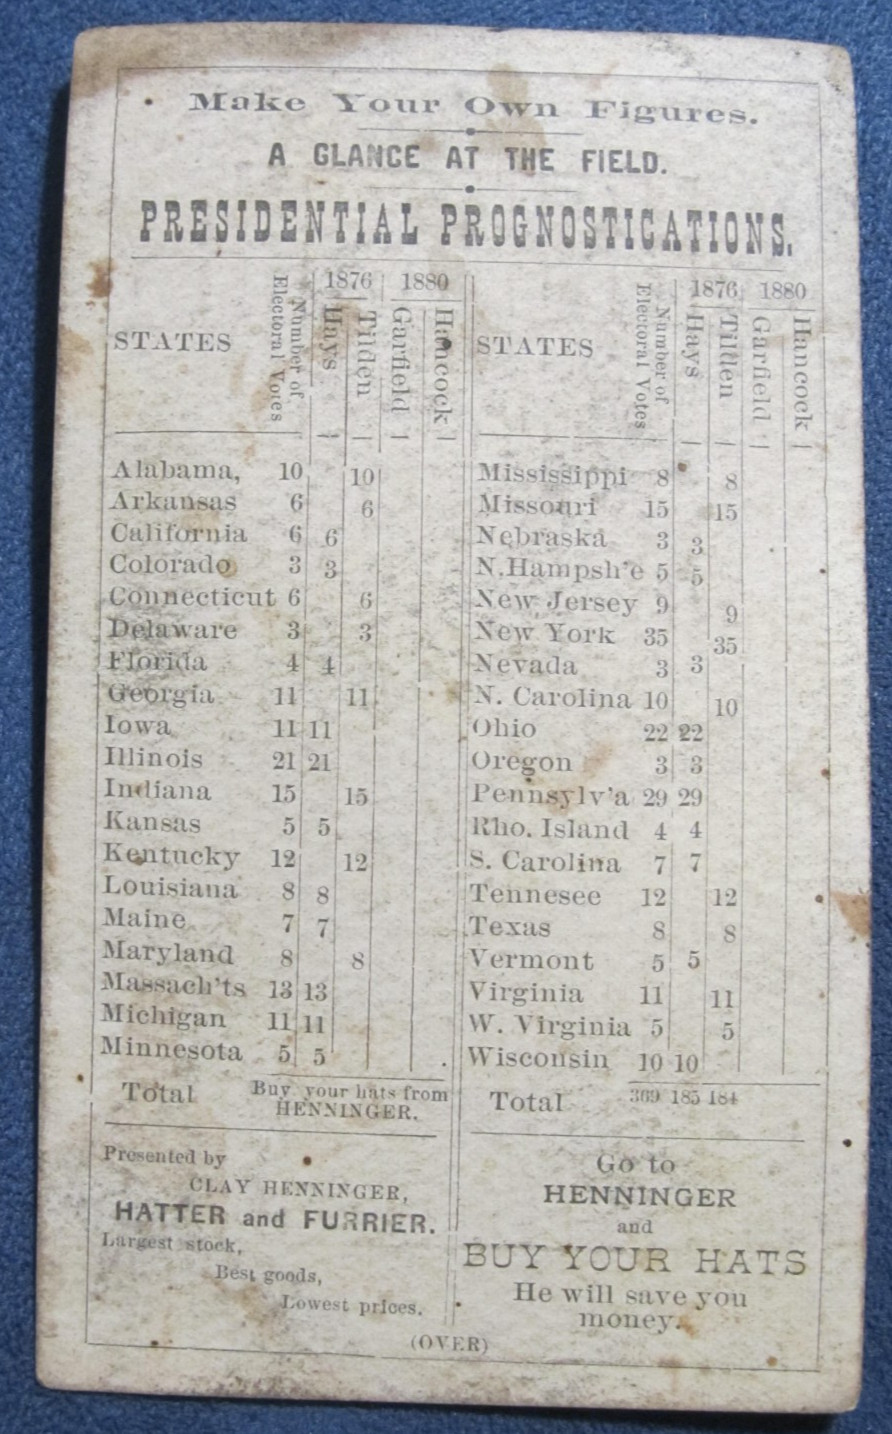 Make Your Own Figures.
A GLANCE AT THE FIELD.
PRESIDENTIAL PROGNOSTICATIONS.
STATES Number of Electoral Votes 1876 Hays Tilden 1880 Garfield Hancock
Alabama, 10 10
Arkansas 6 6
California 6 6
Colorado 3 3
Connecticut 6 6
Delaware 3 3
Florida 4 4
Georgia 11 11
Iowa 11 11
Illinois 21 21
Indiana 15 15
Kansas 5 5
Kentucky 12 12
Louisiana 8 8
Maine 7 7
Maryland 8 8
Massach'ts 13 13
Michigan 11 11
Minnesota 5 5
Total Buy your hats from
HENNINGER.
STATES Number of Electoral Votes 1876 Hays Tilden 1880 Garfield Hancock
Mississippi 8 8
Missouri 15 15
Nebraska 3 3
N.Hampsh'e 5 5
New Jersey 9 9
New York 35 35
Nevada 3 3
N. Carolina 10 10
Ohio 22 22
Oregon 3 3
Pennsylv'a 29 29
Rho. Island 4 4
S. Carolina 7 7
Tennesee 12 12
Texas 8 8
Vermont 5 5
Virginia 11 11
W. Virginia 5 5
Wisconsin 10 10
Total 369 185 184
Presented by
CLAY HENNINGER,
HATTER and FURRIER.
Largest stock,
Best goods,
Lowest prices.
Go to
HENNINGER
and
BUY YOUR HATS
He will save you
money.
(OVER)